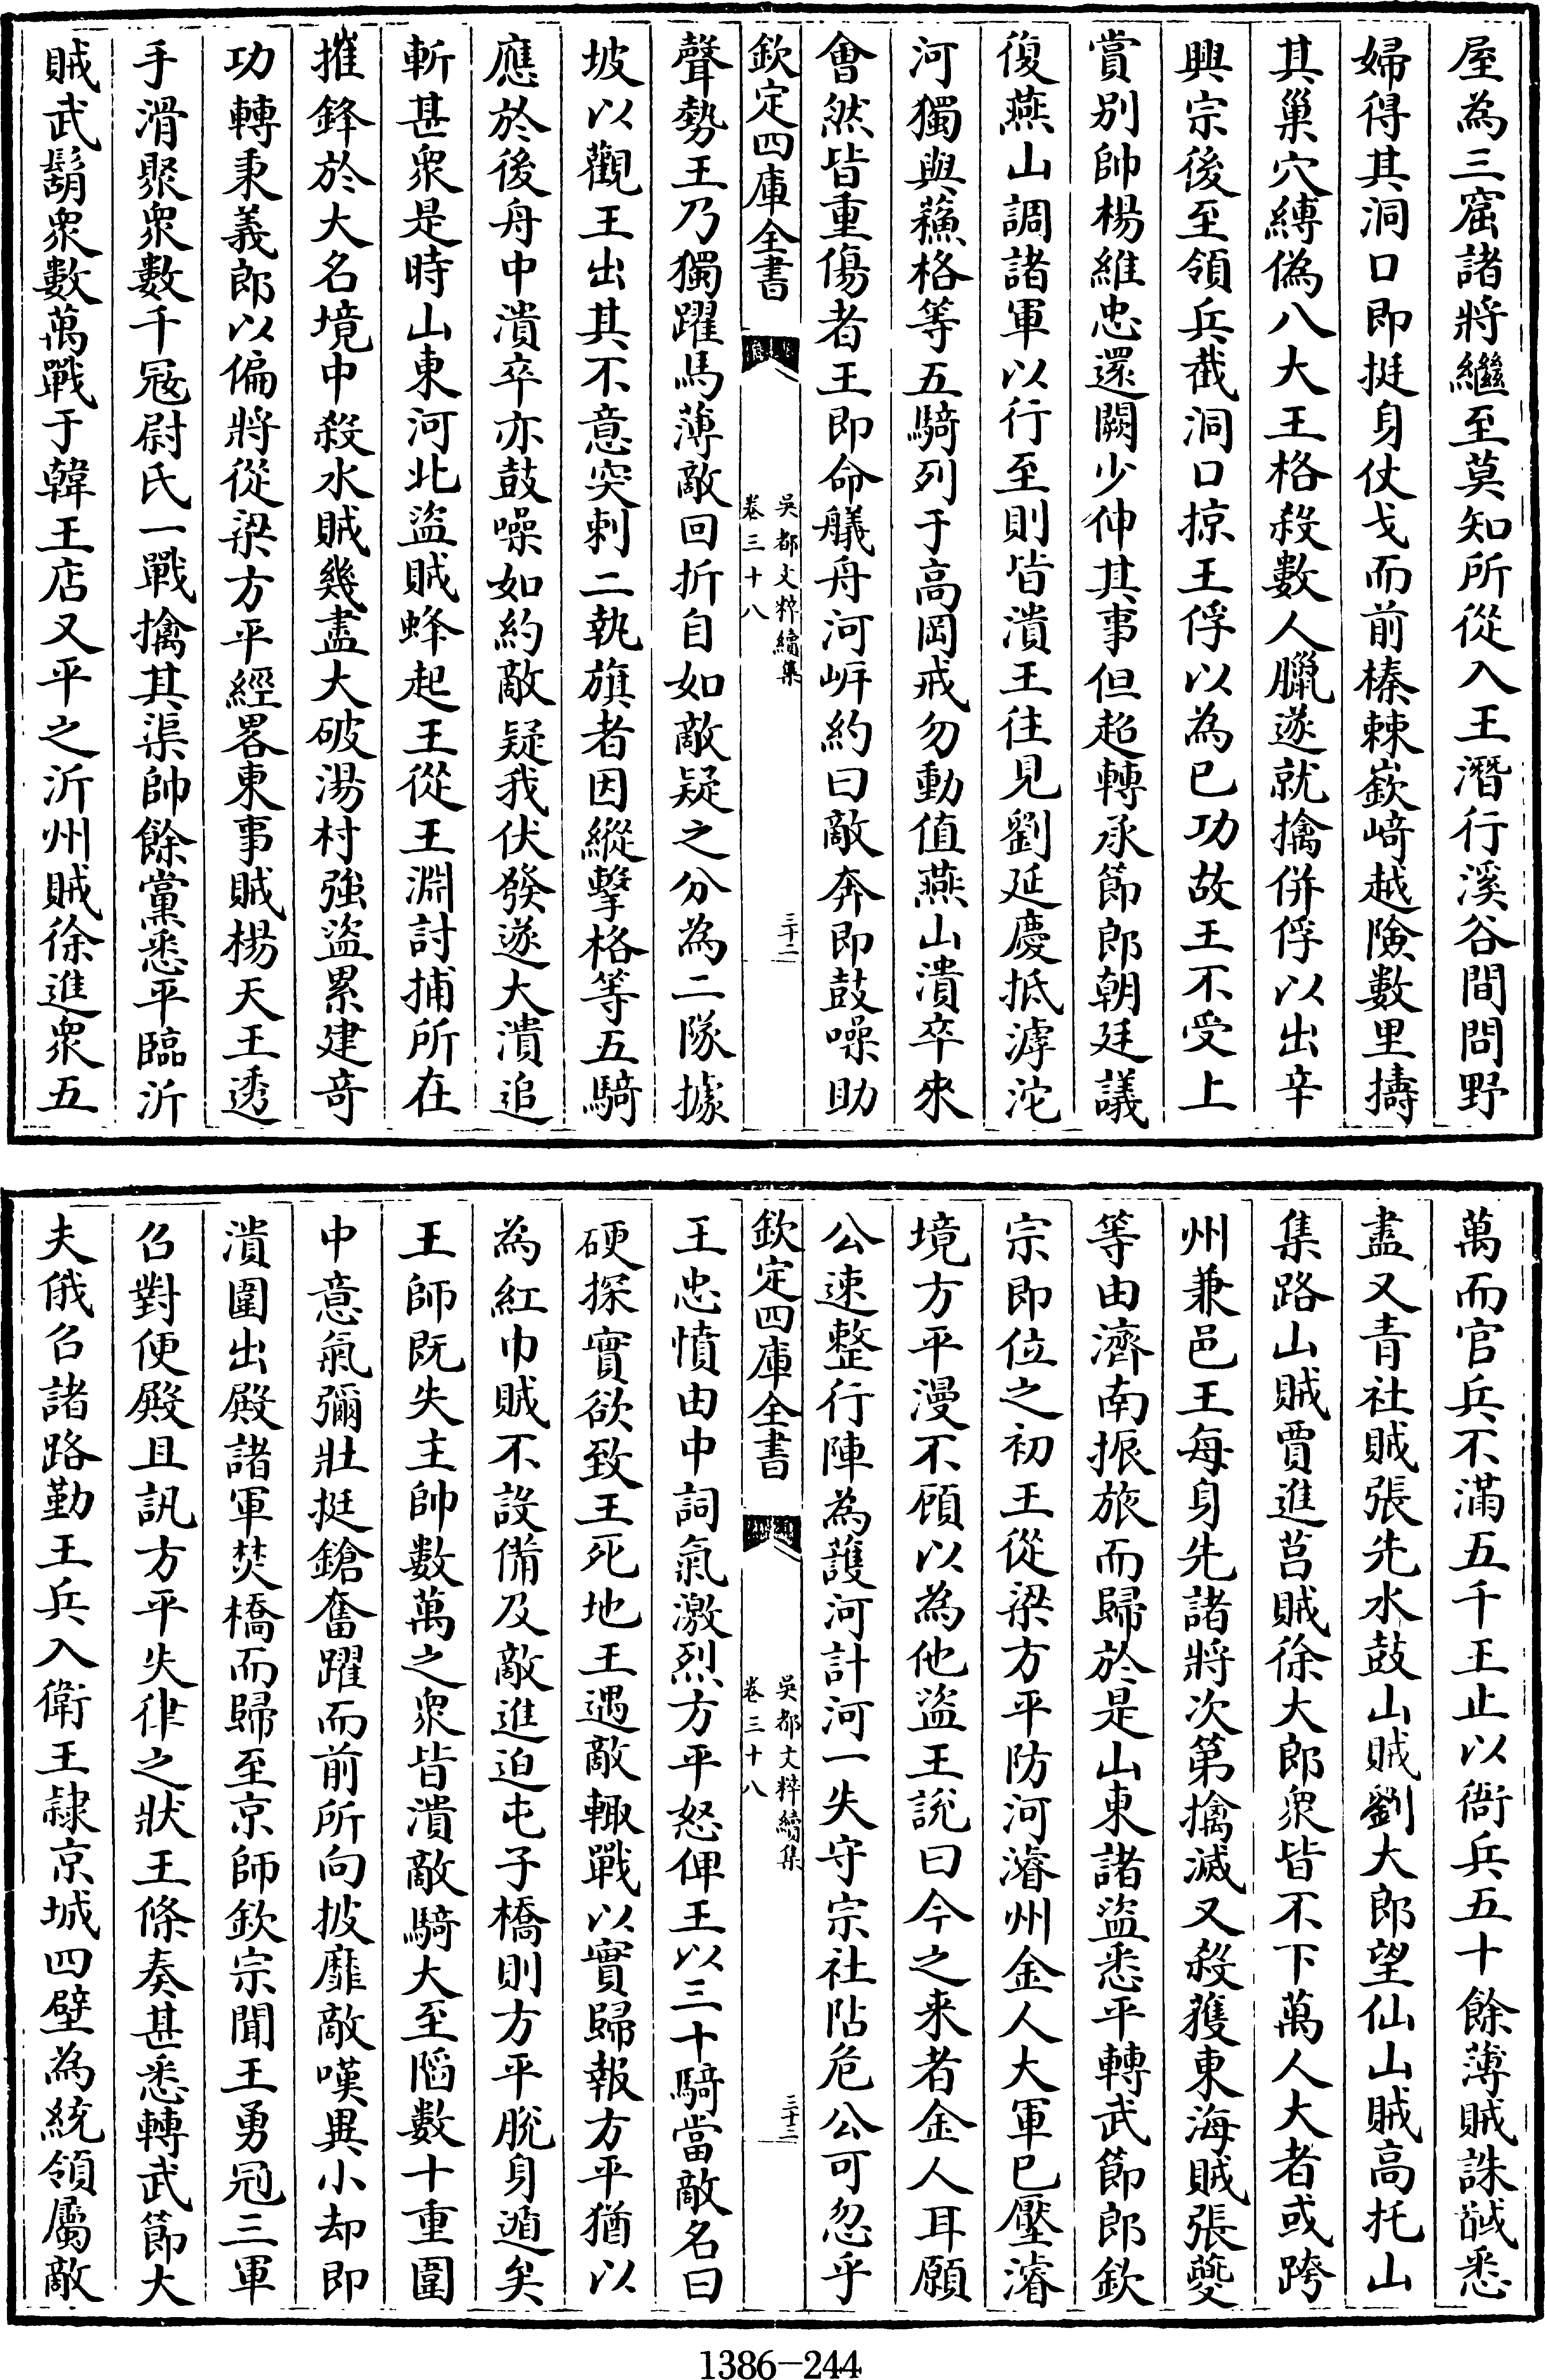 屋為三窟諸將繼至莫知所從入王潛行溪谷間問野
婦得其洞口即挺身仗戈而前榛棘嶔﨑越險數里擣
其巢穴縛偽八大王格殺數人臘遂就擒併俘以出辛
興宗後至領兵截洞口掠王俘以為己功故王不受上
賞别帥楊維忠還闕少伸其事但超轉承節郎朝廷議
復燕山調諸軍以行至則皆潰王往見劉延慶抵滹沱
河獨與蘓格等五騎列于高岡戒勿動值燕山潰卒來
會然皆重傷者王即命艤舟河岍約曰敵奔即鼓噪助
欽定四庫全書
吳都文粹續集
卷三十八
三十二
聲勢王乃獨躍馬薄敵回折自如敵疑之分為二隊據
坡以觀王出其不意突刺二執旗者因縱擊格等五騎
應於後舟中潰卒亦鼓噪如約敵疑我伏發遂大潰追
斬甚衆是時山東河北盜賊蜂起王從王淵討捕所在
摧鋒於大名境中殺水賊幾盡大破湯村強盜累建奇
功轉秉義郎以偏將從梁方平經畧東事賊楊天王透
手滑聚衆數千寇尉氏一戰擒其渠帥餘黨悉平臨沂
賊武鬍衆數萬戰于韓王店又平之沂州賊徐進衆五
萬而官兵不滿五千王止以衙兵五十餘薄賊誅馘悉
盡又青社賊張先水鼓山賊劉大郎望仙山賊高托山
集路山賊賈進莒賊徐大郎衆皆不下萬人大者或跨
州兼邑王每身先諸將次第擒滅又殺獲東海賊張夔
等由濟南振旅而歸於是山東諸盜悉平轉武節郎欽
宗即位之初王從梁方平防河濬州金人大軍已壓濬
境方平漫不顧以為他盜王說曰今之来者金人耳願
公速整行陣為護河計河一失守宗社阽危公可忽乎
欽定四庫全書
吳都文粹續集
卷三十八
三十三
王忠憤由中詞氣激烈方平怒俾王以三十騎當敵名曰
硬探實欲致王死地王遇敵輙戰以實歸報方平猶以
為紅巾賊不設備及敵進迫屯子橋則方平脫身遁矣
王師既失主帥數萬之衆皆潰敵騎大至陷數十重圍
中意氣彌壯挺鎗奮躍而前所向披靡敵嘆異小却即
潰圍出殿諸軍焚橋而歸至京師欽宗聞王勇冠三軍
召對便殿且訊方平失律之狀王條奏甚悉轉武節大
夫俄召諸路勤王兵入衛王隷京城四壁為統領屬敵
1386-244